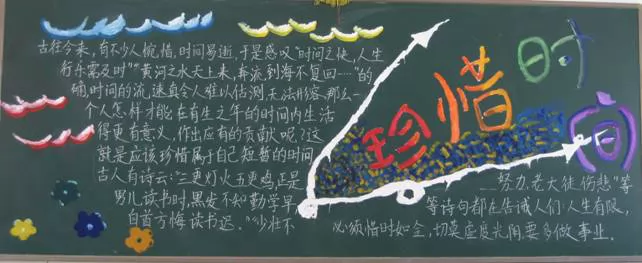 珍惜时间
古往今来,有不少人惋惜,时间易逝,于是感叹“时间之快,人生
行乐需及时”“黄河之水天上来,奔流到海不复回……”的
确,时间的流速真令人难以估测,无法形容,那么一
个人怎样才能在有生之年的时间内生活
得更有意义,作出应有的贡献呢?这
就是应该珍惜属于自己短暂的时间
古人有诗云:“三更灯火五更鸡,正是
男儿读书时,黑发不知勤学早,
白首方悔读书迟。”“少壮不
努力,老大徒伤悲”等
等诗句都在告诫人们:人生有限,
必须惜时如金,切莫虚度光阴,要多做事业。